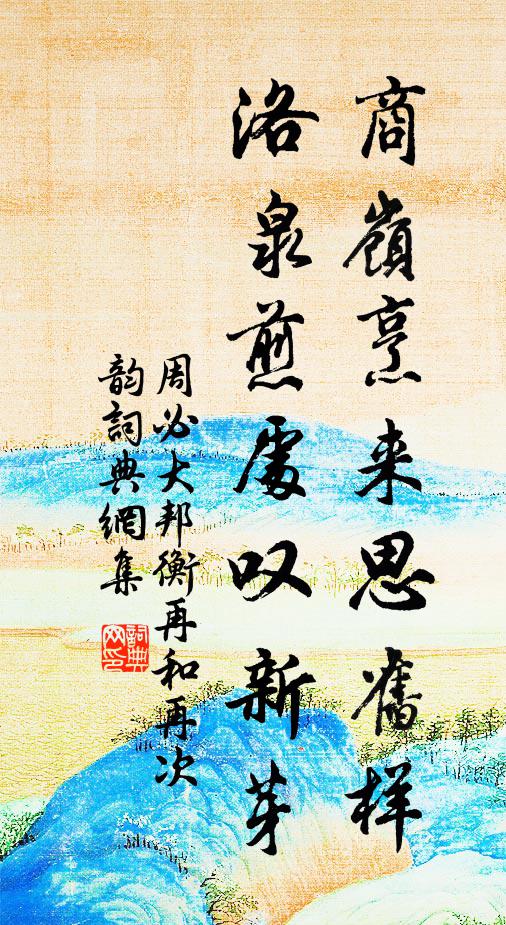 商嶺烹来思舊样
洛泉煎處叹新芽
周必大邦衡再和再次
韵詞典網集
詞典网印